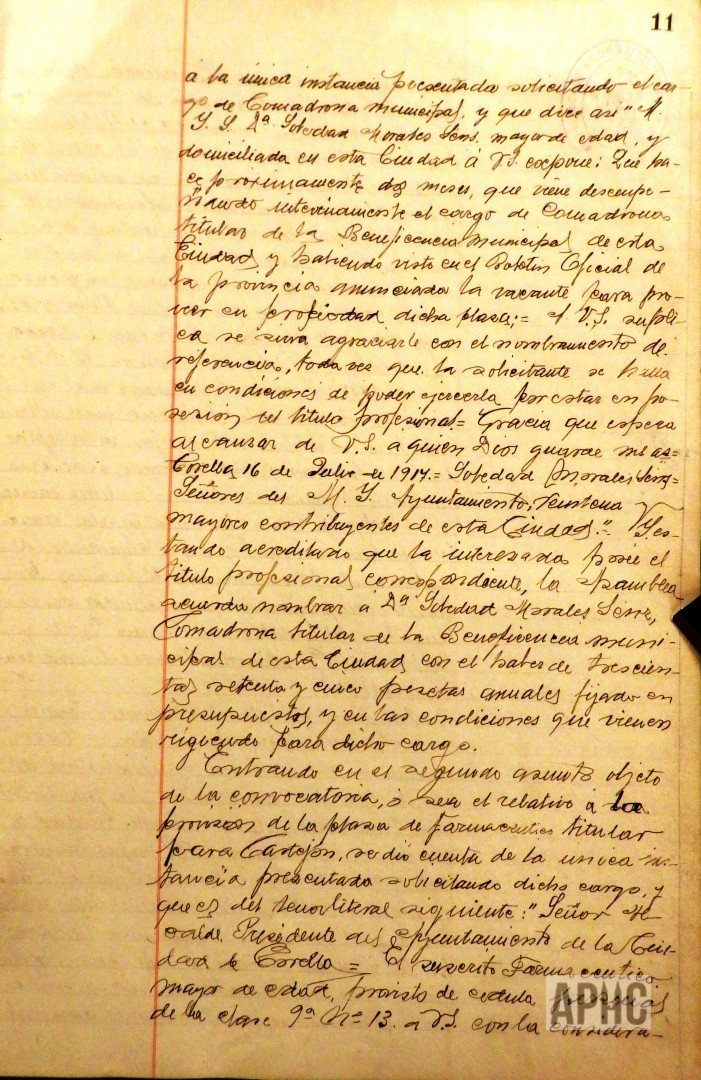 11
á la única instancia presentada solicitando el car-
go de Comadrona municipal, y que dice asi "M.
Y. S. Dª Soledad Morales Sens, mayor de edad, y
domiciliada en esta Ciudad á V.S. expone: Que ha-
ce proximamente dos meses, que viene desempe-
ñando interinamente el cargo de Comadrona
titular de la Beneficencia municipal de esta
Ciudad y habiendo visto en el Boletin Oficial de
la provincia anunciada la vacante para pro-
veer en propiedad dicha plaza; = A V.S. supli-
ca se sirva agraciarle con el nombramiento de
referencia, toda vez que la solicitante se halla
en condiciones de poder ejercerla por estar en po-
sesion del titulo profesional = Gracia que espera
alcanzar de V.S. a quien Dios guarde ms as =
Corella 16 de Julio de 1914. = Soledad Morales Sens =
Señores del M. Y. Ayuntamiento, Veintena
mayores contribuyentes de esta Ciudad." Y es-
tando acreditado que la interesada posee el
titulo profesional correspondiente, la Asamblea
acuerda nombrar á Dª Soledad Morales Sens,
Comadrona titular de la Beneficencia muni-
cipal de esta Ciudad con el haber de trescien-
tas setenta y cinco pesetas anuales fijado en
presupuestos, y en las condiciones que vienen
rigiendo para dicho cargo.
Entrando en el segundo asunto objeto
de la convocatoria, ó sea el relativo á la
provision de la plaza de Farmaceutico titular
para Castejon, se dio cuenta de la unica ins-
tancia presentada solicitando dicho cargo, y
que es del tenor literal siguiente: "Señor Al-
calde Presidente del Ayuntamiento de la Ciu-
dad de Corella = El suscrito Farmaceutico,
mayor de edad, provisto de cedula personal
de la clase 9ª Nº 13. a V.S. con la considera-
APHC